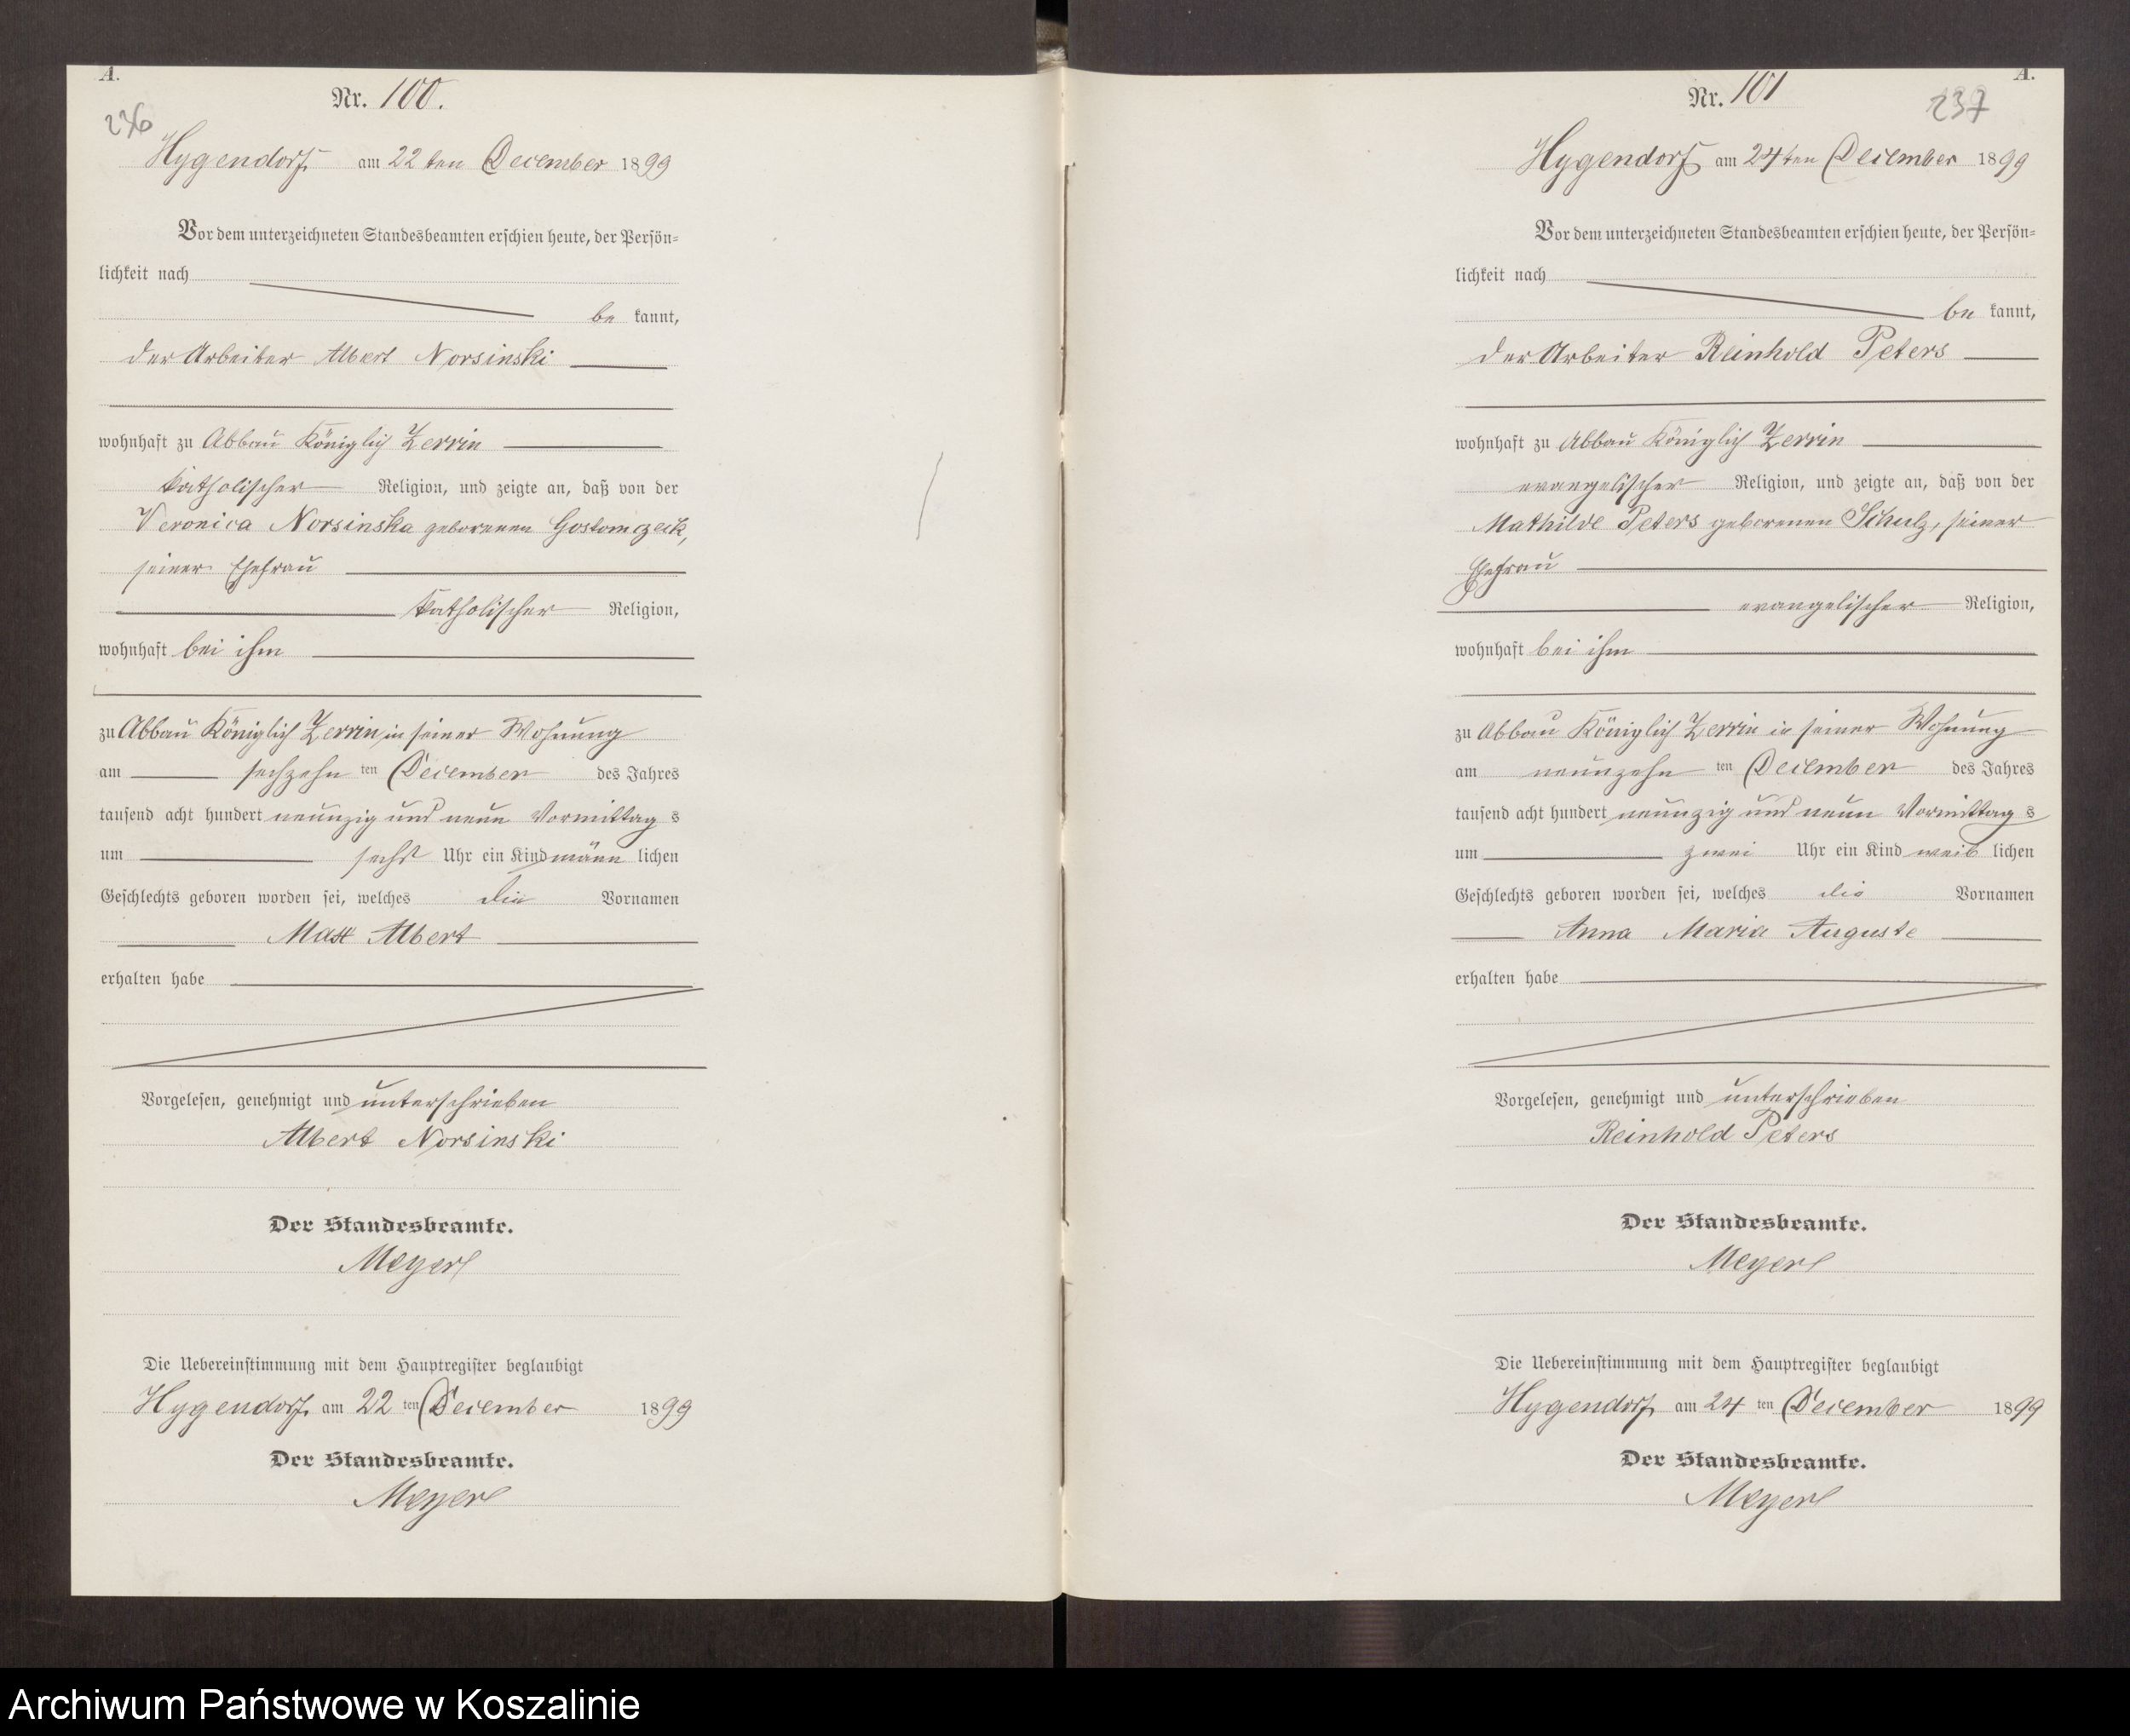 A.
Nr. 100.
236
Hygendorf am 22ten December 1899
Vor dem unterzeichneten Standesbeamten erschien heute, der Persön-
lichkeit nach
be kannt,
der Arbeiter Albert Norsinski
wohnhaft zu Abbau Königlich Zerrin
katholischer Religion, und zeigte an, daß von der
Veronica Norsinska geborenen Gostomczeik,
seiner Ehefrau
katholischer Religion,
wohnhaft bei ihm
zu Abbau Königlich Zerrin in seiner Wohnung
am sechzehn ten December des Jahres
tausend acht hundert neunzig und neun Vormittag s
um sechs Uhr ein Kind männ lichen
Geschlechts geboren worden sei, welches die Vornamen
Max Albert
erhalten habe
Vorgelesen, genehmigt und unterschrieben
Albert Norsinski
Der Standesbeamte.
Meyer
Die Uebereinstimmung mit dem Hauptregister beglaubigt
Hygendorf, am 22 ten December 1899
Der Standesbeamte.
Meyer
A.
Nr. 101
237
Hygendorf am 24ten December 1899
Vor dem unterzeichneten Standesbeamten erschien heute, der Persön-
lichkeit nach
be kannt,
der Arbeiter Reinhold Peters
wohnhaft zu Abbau Königlich Zerrin
evangelischer Religion, und zeigte an, daß von der
Mathilde Peters geborenen Schulz, seiner
Ehefrau
evangelischer Religion,
wohnhaft bei ihm
zu Abbau Königlich Zerrin in seiner Wohnung
am neunzehn ten December des Jahres
tausend acht hundert neunzig und neun Vormittag s
um zwei Uhr ein Kind weib lichen
Geschlechts geboren worden sei, welches die Vornamen
Anna Maria Auguste
erhalten habe
Vorgelesen, genehmigt und unterschrieben
Reinhold Peters
Der Standesbeamte.
Meyer
Die Uebereinstimmung mit dem Hauptregister beglaubigt
Hygendorf, am 24 ten December 1899
Der Standesbeamte.
Meyer
Archiwum Państwowe w Koszalinie